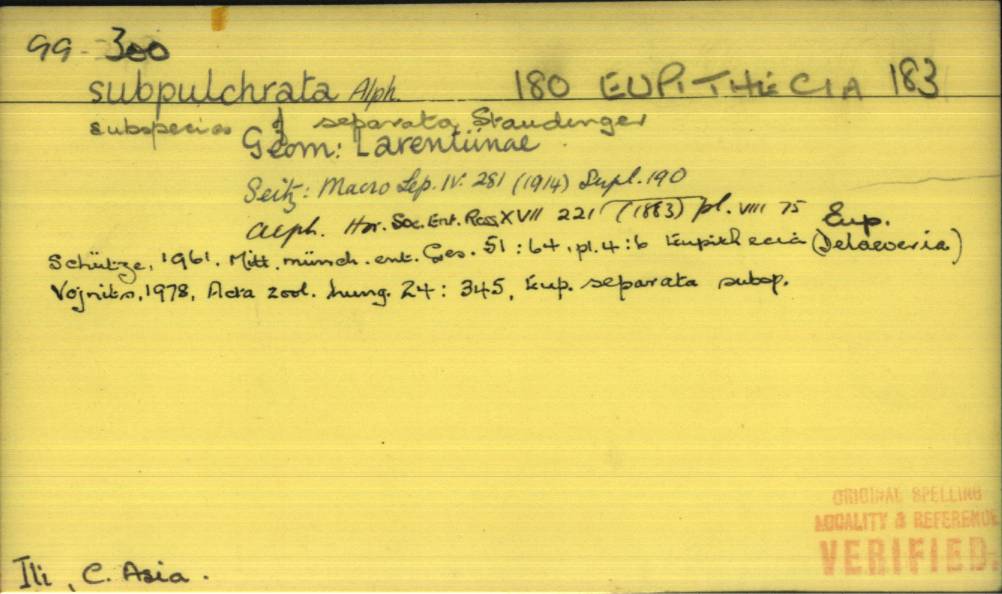 99 - 300
subpulchrata Alph. 180 EUPITHECIA 183
subspecies of separata Staudinger
Geom: Larentiinae.
Seitz: Macro Lep. IV. 281 (1914) Supl. 190
Alph. Hor. Soc. Ent. Ross XVII 221 (1883) pl. VIII 75 Eup.
Schütze, 1961. Mitt. münch. ent. Ges. 51 : 64, pl. 4 : 6 Eupithecia
Vojnits, 1978, Acta zool. hung. 24 : 345, Eup. separata subsp.
ORIGINAL SPELLING
LOCALITY & REFERENCE
VERIFIED.
Ili, C. Asia.